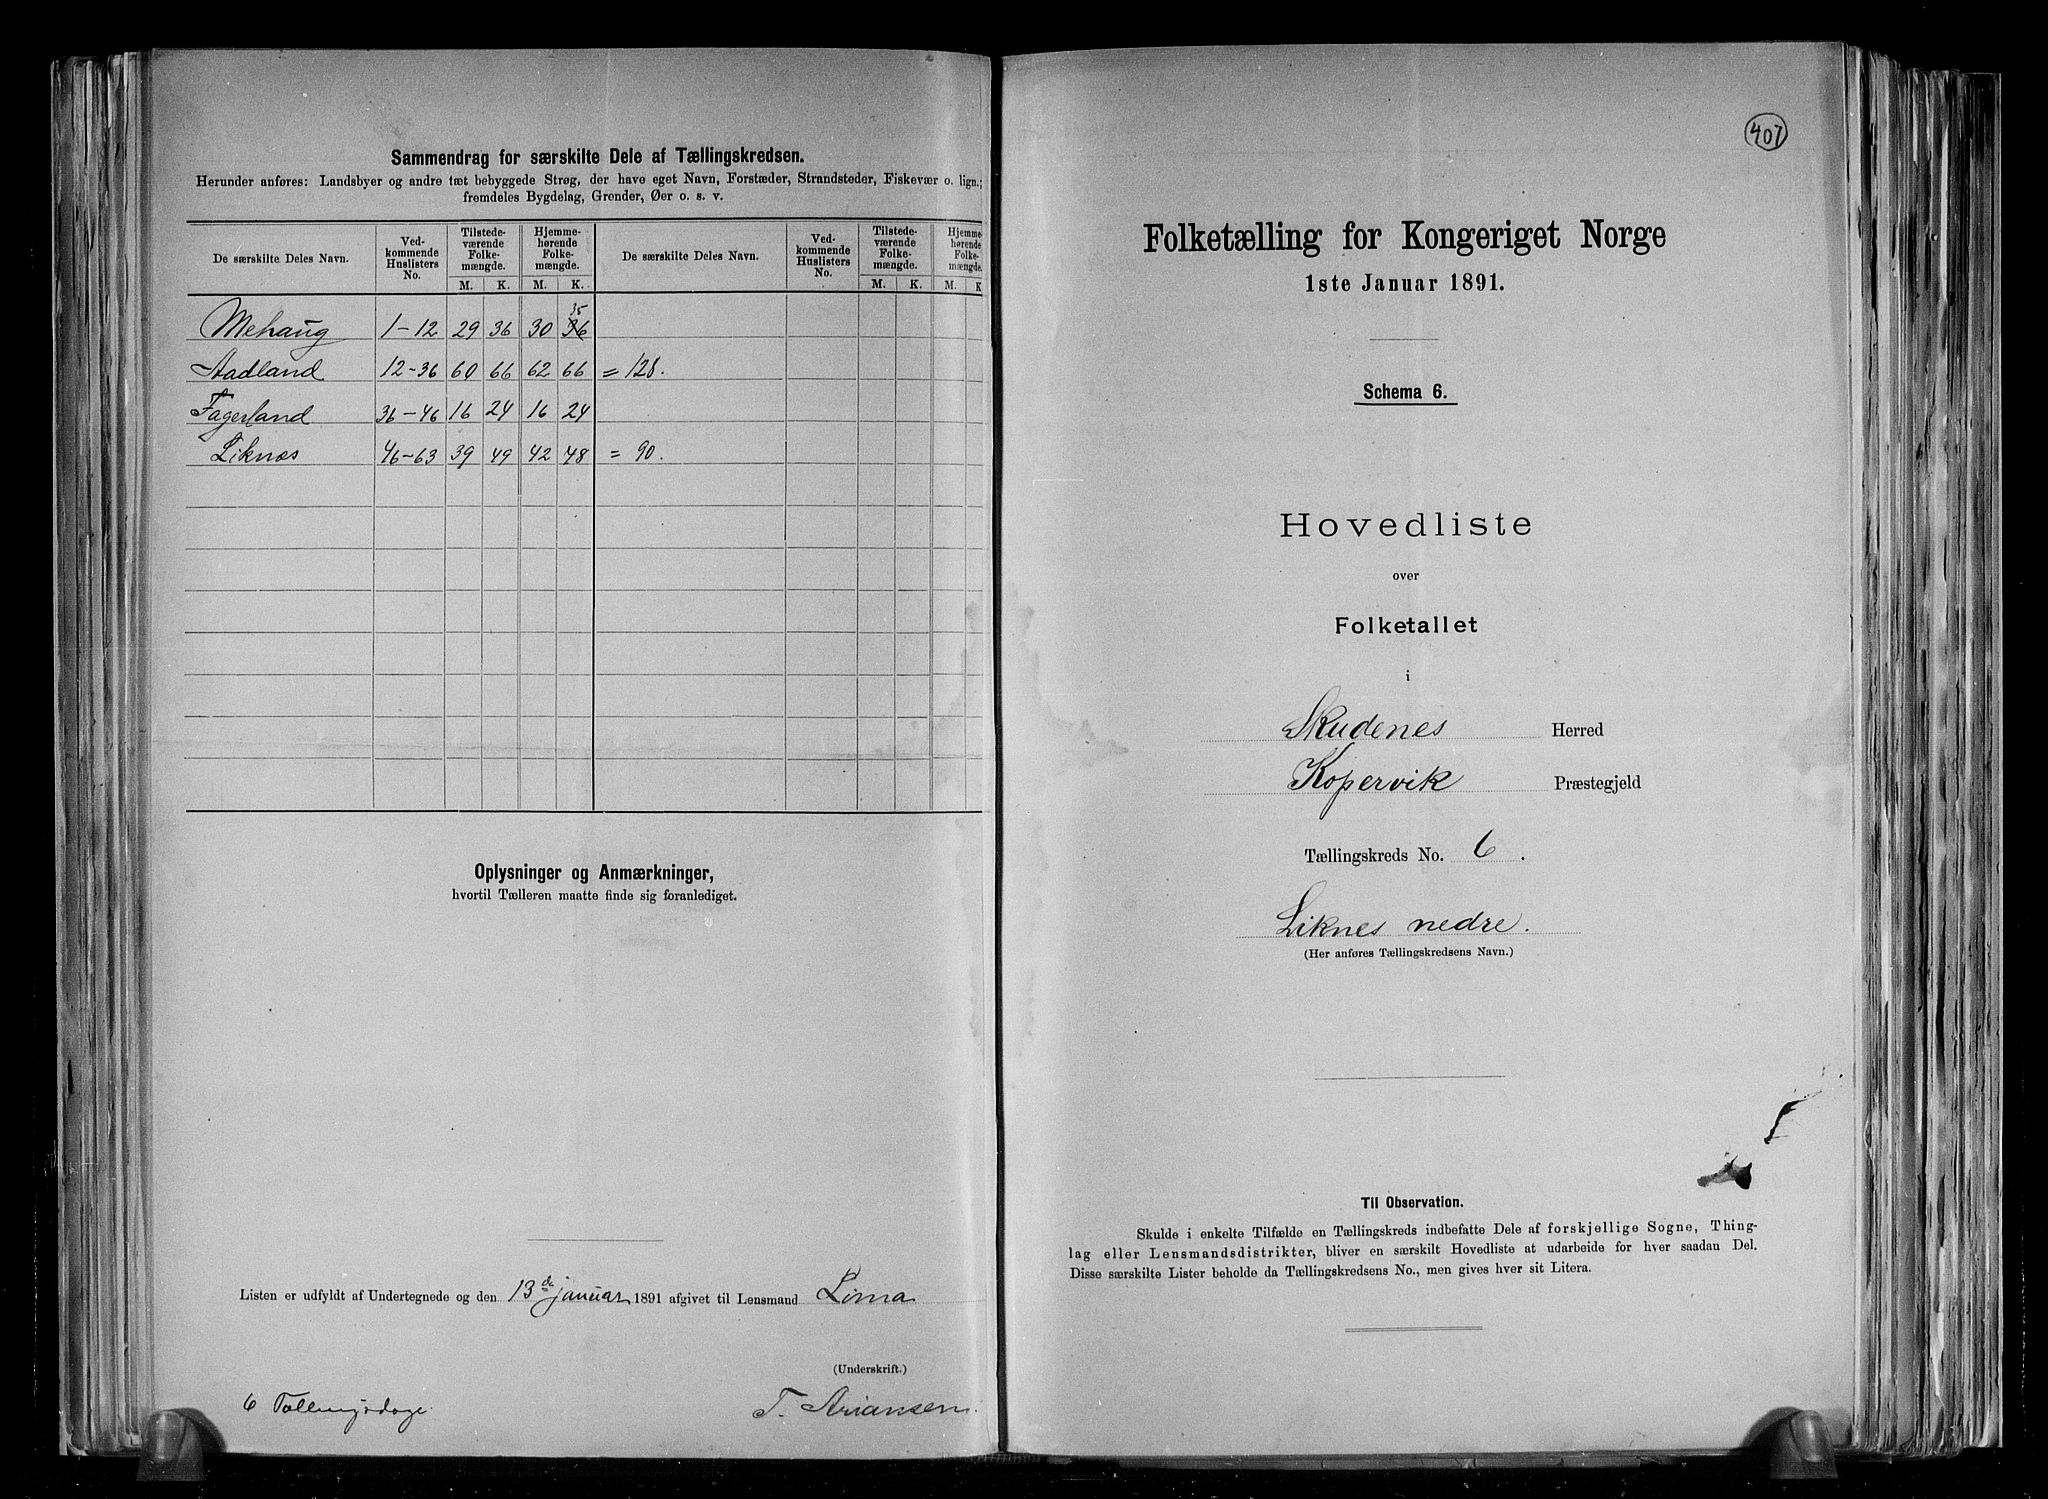 Sammendrag for særskilte Dele af Tællingskredsen.
Herunder anføres: Landsbyer og andre tæt bebyggede Strøg, der have eget Navn, Forstæder, Strandsteder, Fiskevær o. lign.;
fremdeles Bygdelag, Grender, Øer o. s. v.
De særskilte Deles Navn. Ved-kommende Huslisters No. Tilstede-værende Folke-mængde. Hjemme-hørende Folke-mængde. De særskilte Deles Navn. Ved-kommende Huslisters No. Tilstede-værende Folke-mængde. Hjemme-hørende Folke-mængde.
M. K. M. K. M. K. M. K
35
Mehaug 1-12 29 36 30 36
Aadland 12-36 60 66 62 66 = 128.
Fagerland 36-46 16 24 16 24
Liknæs 46-63 39 49 42 48 = 90.
Oplysninger og Anmærkninger,
hvortil Tælleren maatte finde sig foranlediget.
Listen er udfyldt af Undertegnede og den 13de januar 1891 afgivet til Lensmand Lima
(Underskrift.)
6 Tællingsdage. T. Ariansen.
407
Folketælling for Kongeriget Norge
1ste Januar 1891.
Schema 6.
Hovedliste
over
Folketallet
i
Skudenes Herred
Kopervik Præstegjeld
Tællingskreds No. 6.
Liknes nedre.
(Her anføres Tællingskredsens Navn.)
Til Observation.
Skulde i enkelte Tilfælde en Tællingskreds indbefatte Dele af forskjellige Sogne, Thing-
lag eller Lensmandsdistrikter, bliver en særskilt Hovedliste at udarbeide for hver saadan Del.
Disse særskilte Lister beholde da Tællingskredsens No., men gives hver sit Litera.